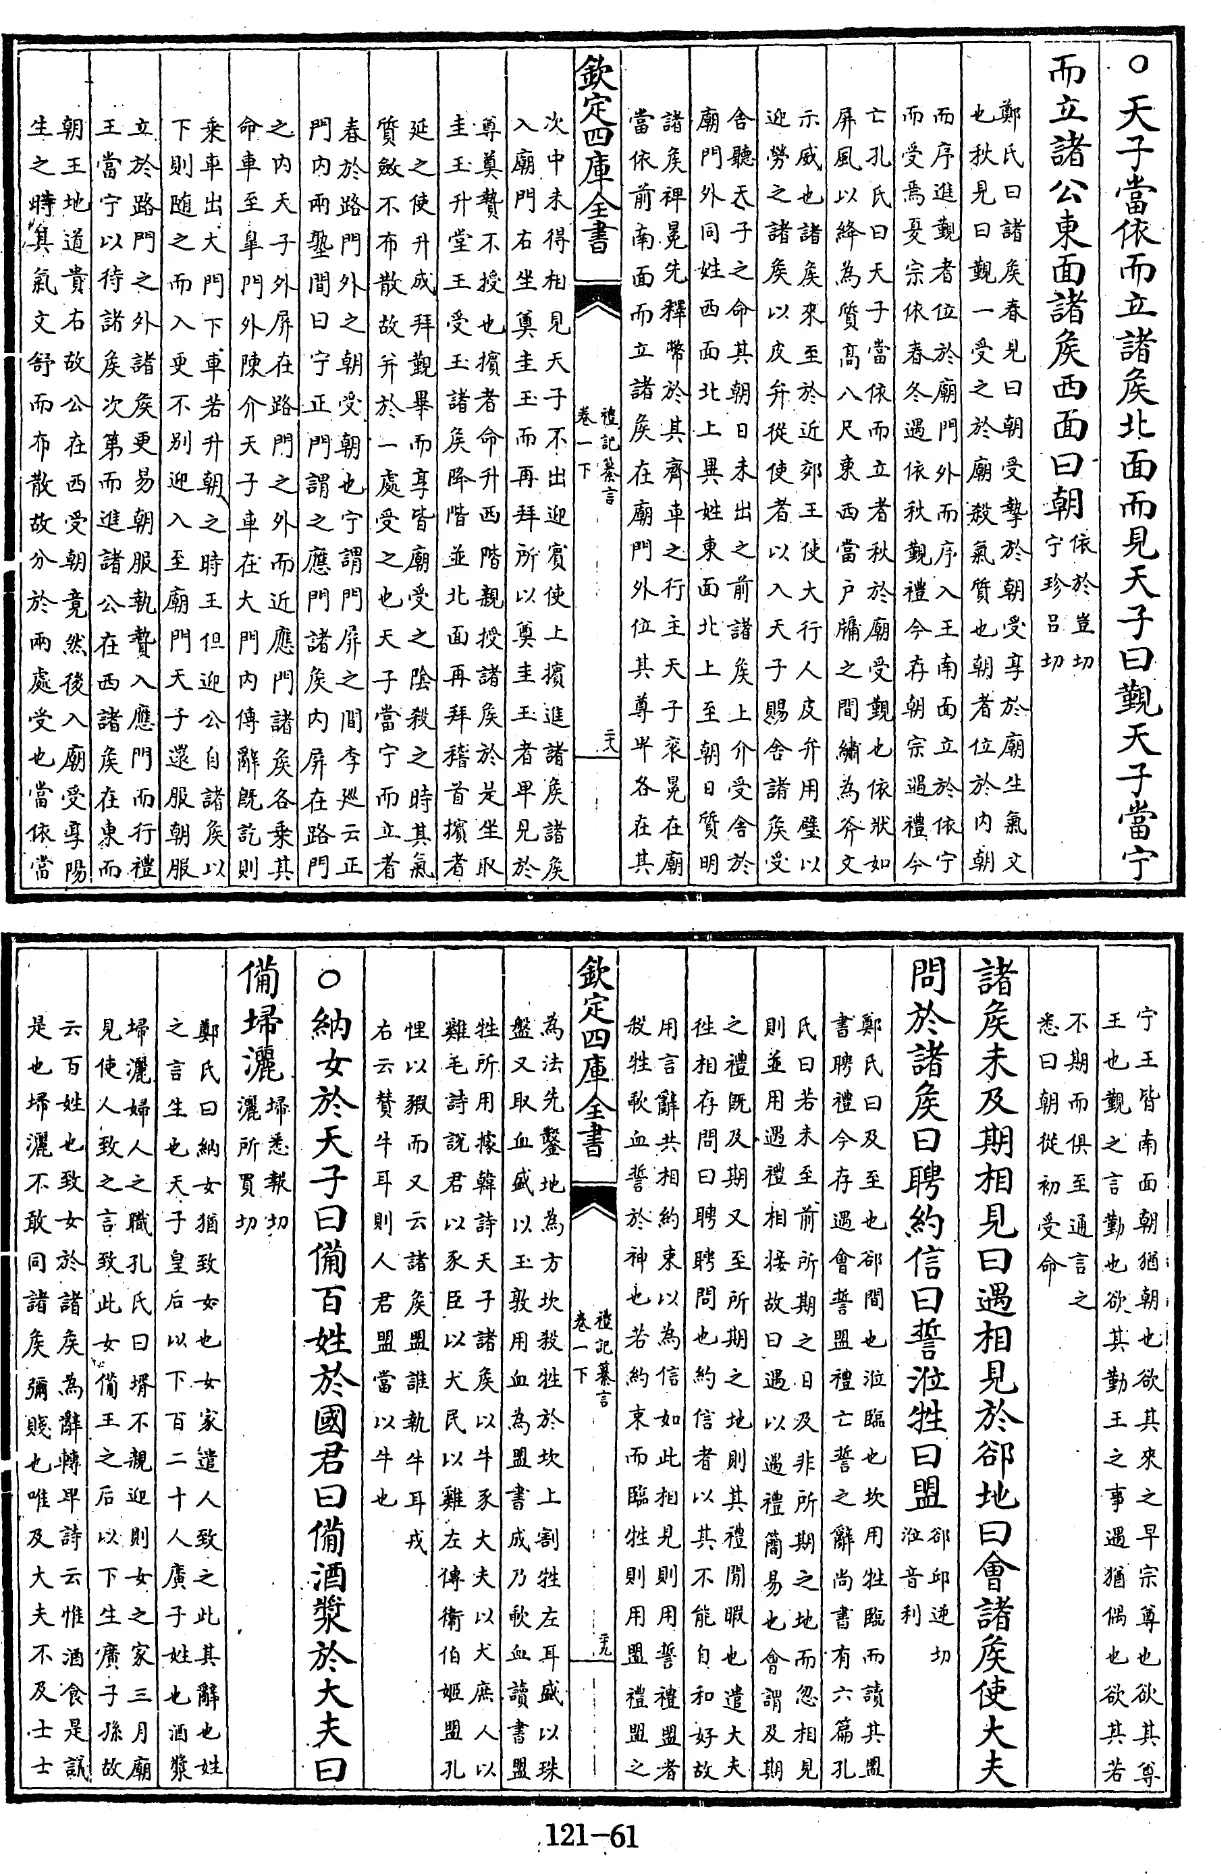 ○天子當依而立諸侯北面而見天子曰覲天子當宁
而立諸公東面諸侯西面曰朝依於豈切
宁珍呂切
鄭氏曰諸侯春見曰朝受摯於朝受享於廟生氣文
也秋見曰覲一受之於廟殺氣質也朝者位於內朝
而序進覲者位於廟門外而序入王南面立於依宁
而受焉夏宗依春冬遇依秋覲禮今存朝宗遇禮今
亡孔氏曰天子當依而立者秋於廟受覲也依狀如
屏風以絳為質高八尺東西當戶牖之間繡為斧文
示威也諸侯來至於近郊王使大行人皮弁用璧以
迎勞之諸侯以皮弁從使者以入天子賜舍諸侯受
舍聽天子之命其朝日未出之前諸侯上介受舍於
廟門外同姓西面北上異姓東面北上至朝日質明
諸侯裨冕先釋幣於其齊車之行主天子衮冕在廟
當依前南面而立諸侯在廟門外位其尊卑各在其
欽定四庫全書
禮記纂言
卷一下
二十八
次中未得相見天子不出迎賓使上擯進諸侯諸侯
入廟門右坐奠圭玉而再拜所以奠圭玉者卑見於
尊奠贄不授也擯者命升西階親授諸侯於是坐取
圭玉升堂王受玉諸侯降階並北面再拜稽首擯者
延之使升成拜覲畢而享皆廟受之陰殺之時其氣
質斂不布散故并於一處受之也天子當宁而立者
春於路門外之朝受朝也宁謂門屏之間李廵云正
門內兩塾間曰宁正門謂之應門諸侯內屏在路門
之內天子外屏在路門之外而近應門諸侯各乘其
命車至臯門外陳介天子車在大門內傳辭既訖則
乘車出大門下車若升朝之時王但迎公自諸侯以
下則随之而入更不別迎入至廟門天子還服朝服
立於路門之外諸侯更易朝服執贄入應門而行禮
王當宁以待諸侯次第而進諸公在西諸侯在東而
朝王地道貴右故公在西受朝竟然後入廟受享陽
生之時其氣文舒而布散故分於兩處受也當依當
宁王皆南面朝猶朝也欲其來之早宗尊也欲其尊
王也覲之言勤也欲其勤王之事遇猶偶也欲其若
不期而俱至通言之
悉曰朝從初受命
諸侯未及期相見曰遇相見於郤地曰會諸侯使大夫
問於諸侯曰聘約信曰誓涖牲曰盟郤邱逆切
涖音利
鄭氏曰及至也郤間也涖臨也坎用牲臨而讀其盟
書聘禮今存遇會誓盟禮亡誓之辭尚書有六篇孔
氏曰若未至前所期之日及非所期之地而忽相見
則並用遇禮相接故曰遇以遇禮簡易也會謂及期
之禮既及期又至所期之地則其禮閒暇也遣大夫
徃相存問曰聘聘問也約信者以其不能自和好故
用言辭共相約束以為信如此相見則用誓禮盟者
殺牲歃血誓於神也若約束而臨牲則用盟禮盟之
欽定四庫全書
禮記纂言
卷一下
二十九
為法先鑿地為方坎殺牲於坎上割牲左耳盛以珠
盤又取血盛以玉敦用血為盟書成乃歃血讀書盟
牲所用據韓詩天子諸侯以牛豕大夫以犬庶人以
雞毛詩說君以豕臣以犬民以雞左傳衛伯姬盟孔
悝以豭而又云諸侯盟誰執牛耳戎
右云贊牛耳則人君盟當以牛也
○納女於天子曰備百姓於國君曰備酒漿於大夫曰
備埽灑埽悉報切
灑所買切
鄭氏曰納女猶致女也女家遣人致之此其辭也姓
之言生也天子皇后以下百二十人廣子姓也酒漿
埽灑婦人之職孔氏曰壻不親迎則女之家三月廟
見使人致之言致此女備王之后以下生廣子孫故
云百姓也致女於諸侯為辭轉卑詩云惟酒食是議
是也埽灑不敢同諸侯彌賤也唯及大夫不及士士
121-61